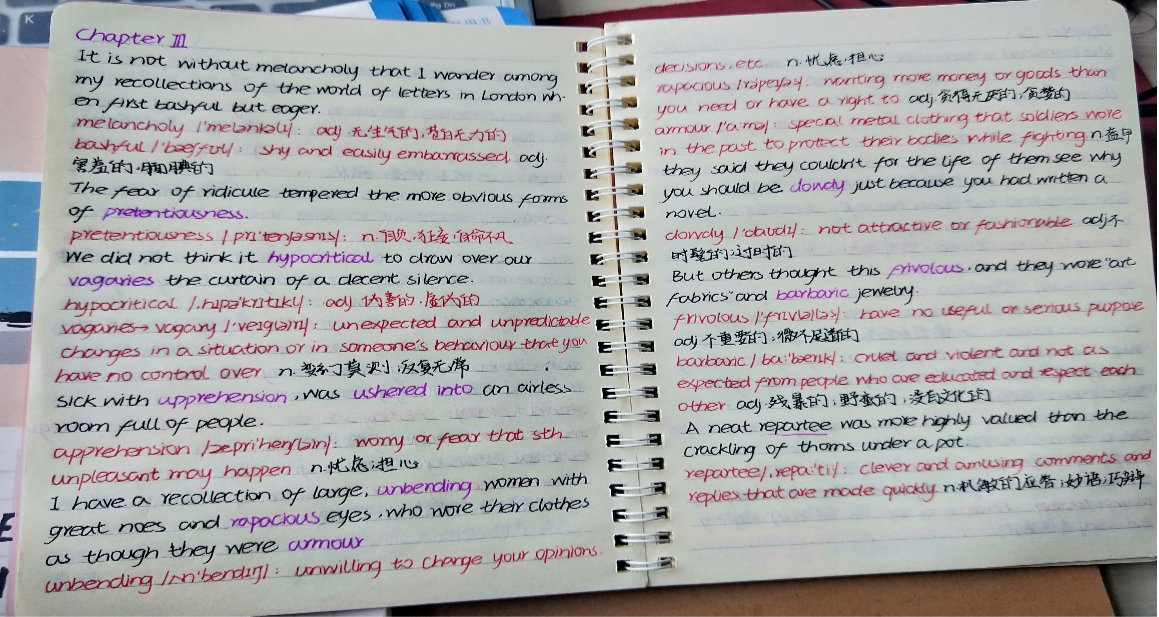 K
Pg Dn
Chapter III
It is not without melancholy that I wander among
my recollections of the world of letters in London wh-
en first bashful but eager.
melancholy /'melənkəli/: adj 无生气的,苍白无力的
bashful /'bæʃfʊl/: shy and easily embarrassed adj.
害羞的,腼腆的
The fear of ridicule tempered the more obvious forms
of pretentiousness.
pretentiousness /prɪ'tenʃəsnɪs/: n.自负,狂妄,自命不凡
We did not think it hypocritical to draw over our
vagaries the curtain of a decent silence.
hypocritical /ˌhɪpə'krɪtɪkl/: adj 伪善的,虚伪的
vagaries→ vagary /'veɪgərɪ/: unexpected and unpredictable
changes in a situation or in someone's behaviour that you
have no control over n.变幻莫测,反复无常
sick with apprehension, was ushered into an airless
room full of people.
apprehension /ˌæprɪ'henʃ(ə)n/: worry or fear that sth
unpleasant may happen n.忧虑;担心
I have a recollection of large, unbending women with
great noes and rapacious eyes, who wore their clothes
as though they were armour
unbending /ʌn'bendɪŋ/: unwilling to change your opinions.
decisions, etc. n.忧虑,担心
rapacious /rə'peɪʃəs/: wanting more money or goods than
you need or have a right to adj.贪得无厌的,贪婪的
armour /'ɑːmə/: special metal clothing that soldiers wore
in the past to protect their bodies while fighting n盔甲
they said they couldn't for the life of them see why
you should be dowdy just because you had written a
novel.
dowdy /'daʊdɪ/: not attractive or fashionable adj不
时髦的;过时的
But others thought this frivolous, and they wore "art
fabrics" and barbaric jewelry.
frivolous /'frɪvələs/: have no useful or serious purpose
adj不重要的;微不足道的
barbaric /bɑː'bærɪk/: cruel and violent and not as
expected from people who are educated and respect each
other adj.残暴的,野蛮的,没有文化的
A neat repartee was more highly valued than the
crackling of thorns under a pot.
repartee /ˌrepɑː'tiː/: clever and amusing comments and
replies that are made quickly n.机敏的应答;妙语;巧辩